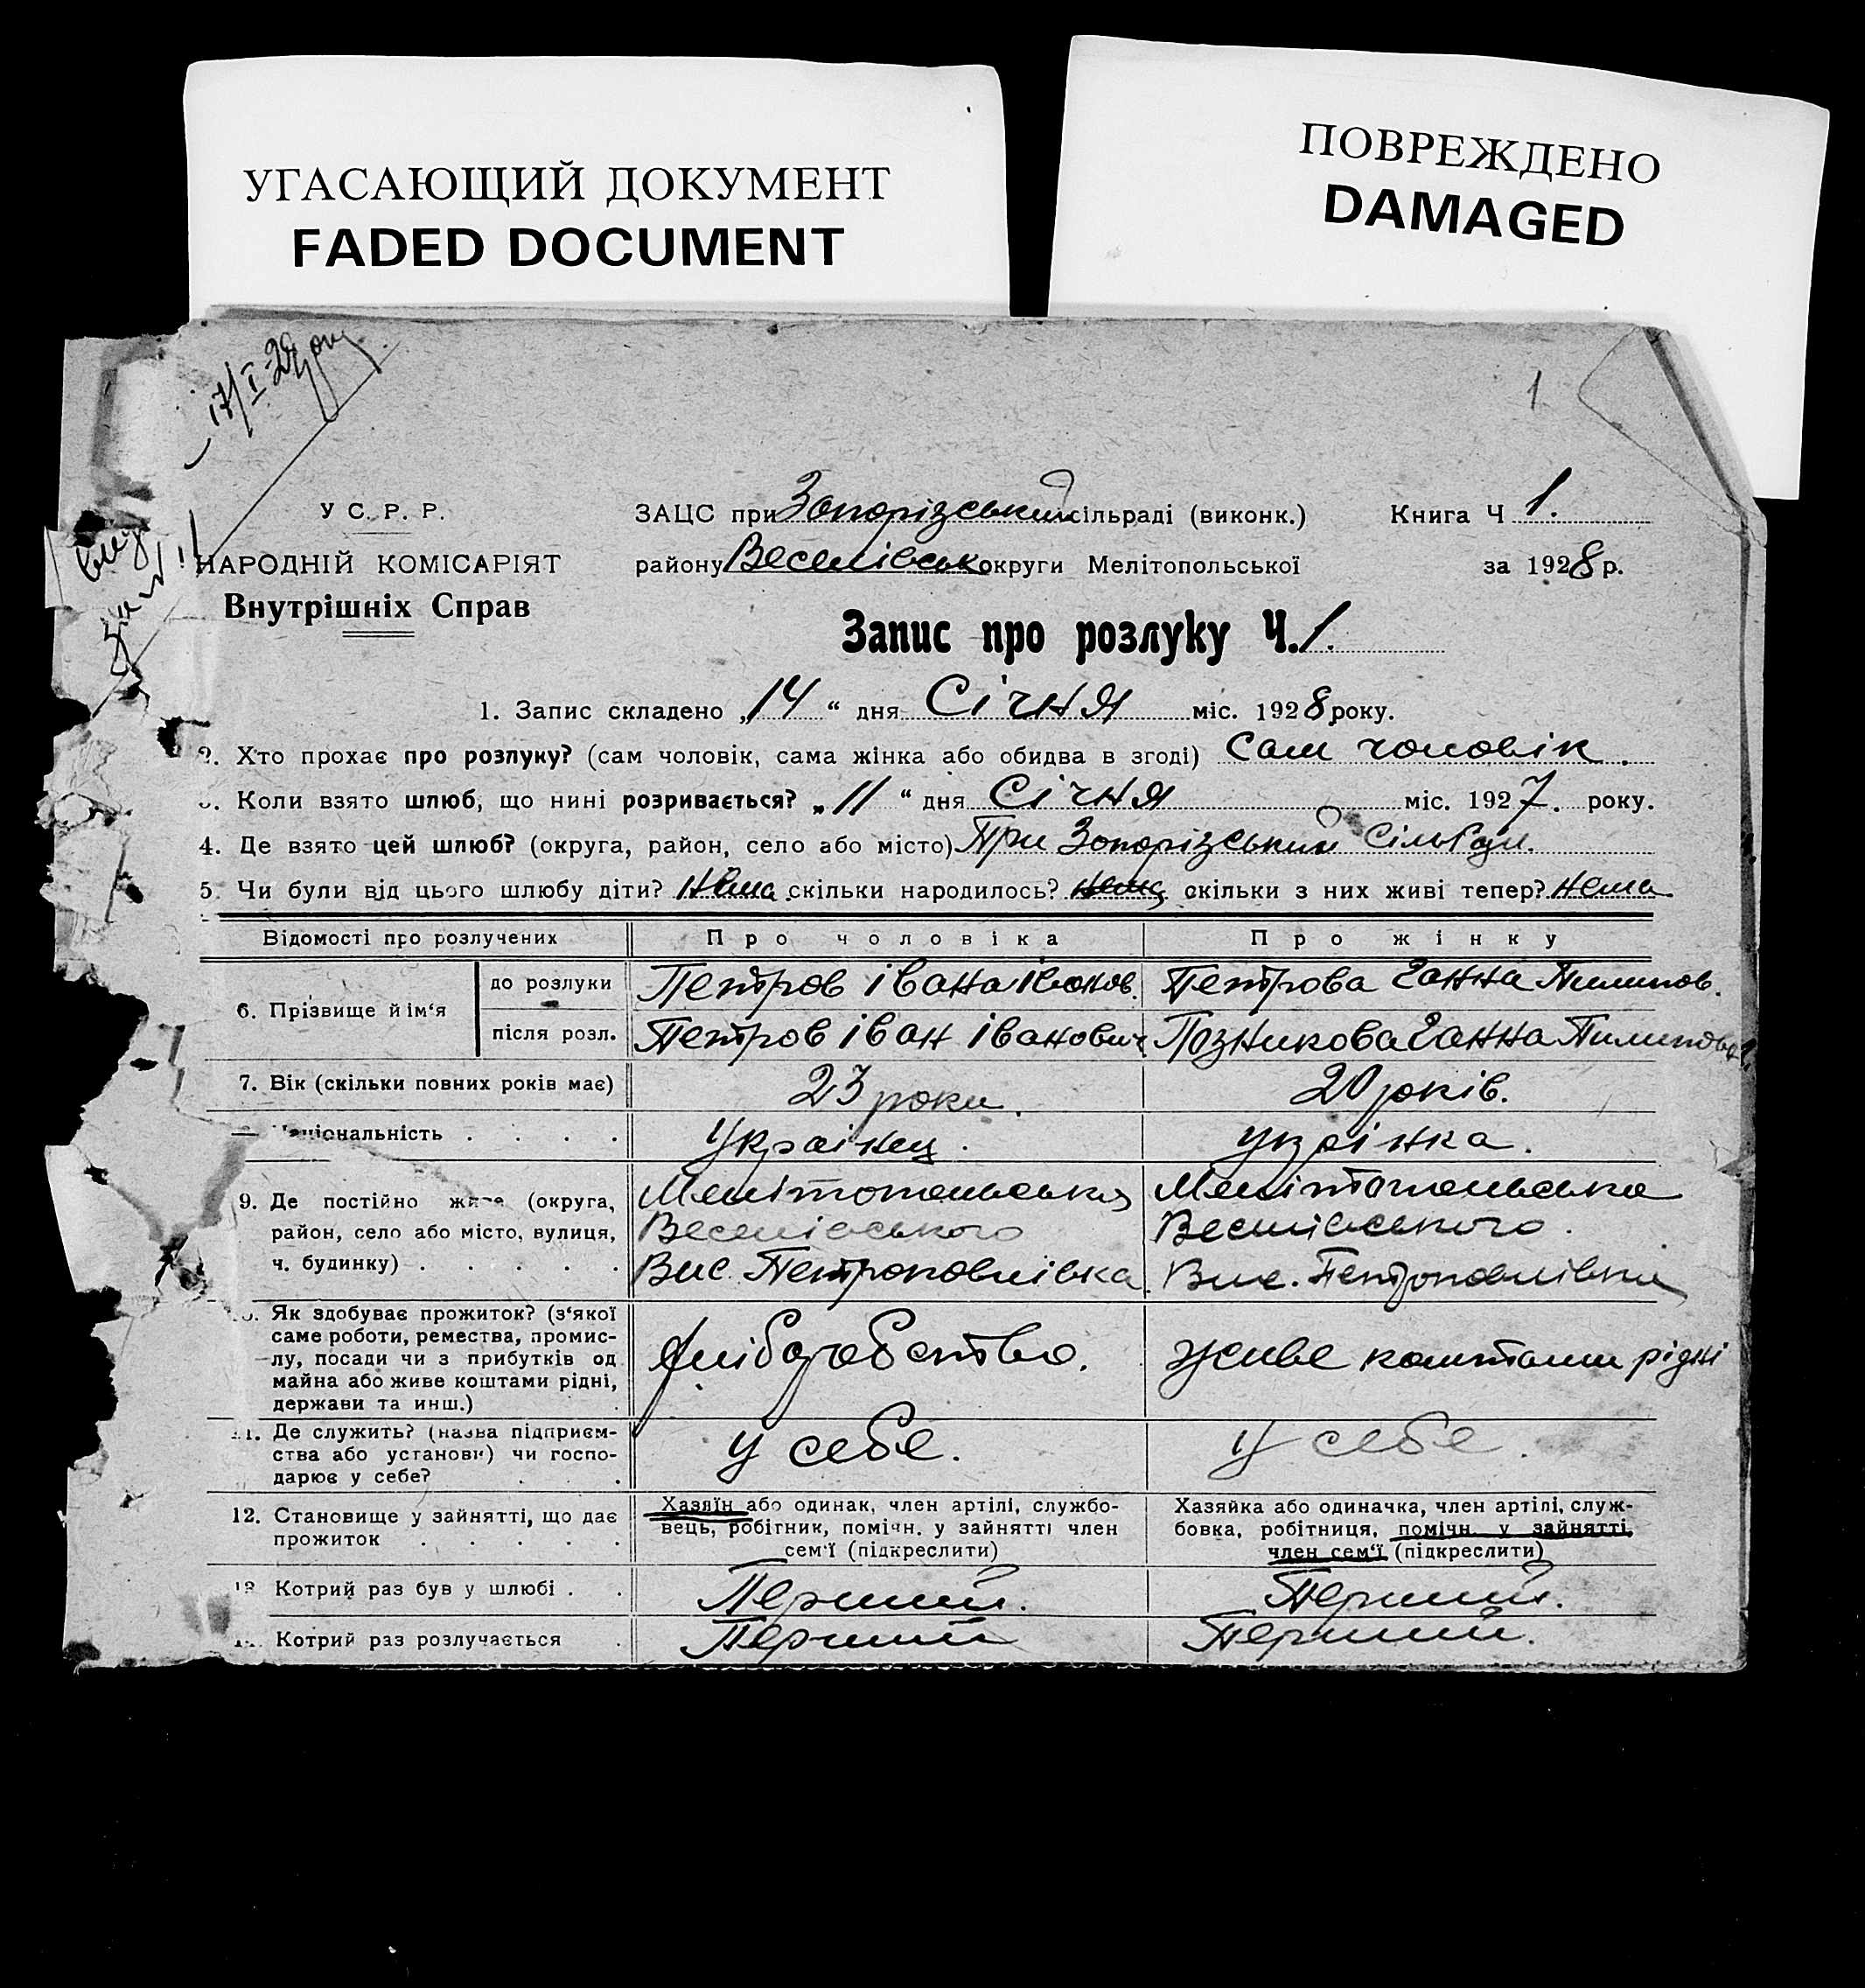 УГАСАЮЩИЙ ДОКУМЕНТ
FADED DOCUMENT
ПОВРЕЖДЕНО
DAMAGED
17/I-28
1
У С. Р. Р.
НАРОДНІЙ КОМІСАРІЯТ
Внутрішніх Справ
ЗАЦС при Запорізький сільраді (виконк.) Книга Ч 1.
району Веселівськ округи Мелітопольської за 1928 р.
Запис про розлуку Ч. 1.
1. Запис складено „14“ дня Січня міс. 1928 року.
2. Хто прохає про розлуку? (сам чоловік, сама жінка або обидва в згоді) Сам чоловік.
3. Коли взято шлюб, що нині розривається? „11“ дня Січня міс. 1927. року.
4. Де взято цей шлюб? (округа, район, село або місто) При Запорізький Сільради.
5. Чи були від цього шлюбу діти? Нема скільки народилось? нема скільки з них живі тепер? нема
Відомості про розлучених Про чоловіка Про жінку
6. Прізвище й ім‘я
до розлуки Петров Івана Петрова Ганна Пилипов.
після розл. Петров Іван Іванович Познікова Ганна Пилипова
7. Вік (скільки повних років має) 23 роки. 20 років.
Національність . . . . Українец. Украінка.
9. Де постійно живе (округа, Мелітопольська Мелітопольська
район, село або місто, вулиця, Веселівського Веселівського.
ч. будинку) . . . . . Вис. Петроповлівка Вис. Петроповлівка
Як здобуває прожиток? (з‘якої
саме роботи, ремества, промис-
лу, посади чи з прибутків од
майна або живе коштами рідні,
держави та инш.)
Хліборобство. Живе коштами рідні
11. Де служить? (назва підприєм-
ства або установи) чи госпо-
дарює у себе?
у себе. у себе.
12. Становище у зайнятті, що дає
прожиток . . . . .
Хазяїн або одинак, член артілі, службо-
вець, робітник, помічн. у зайнятті член
сем‘ї (підкреслити)
Хазяйка або одиначка, член артілі, служ-
бовка, робітниця, помічн. у зайнятті,
член сем‘ї (підкреслити)
13 Котрий раз був у шлюбі . . Перший. Перший.
Котрий раз розлучається . Перший Перший.